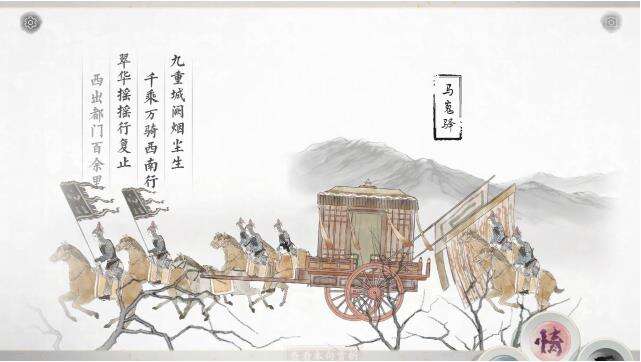 九重城阙烟尘生
千乘万骑西南行
翠华摇摇行复止
西出都门百余里
马嵬驿
情